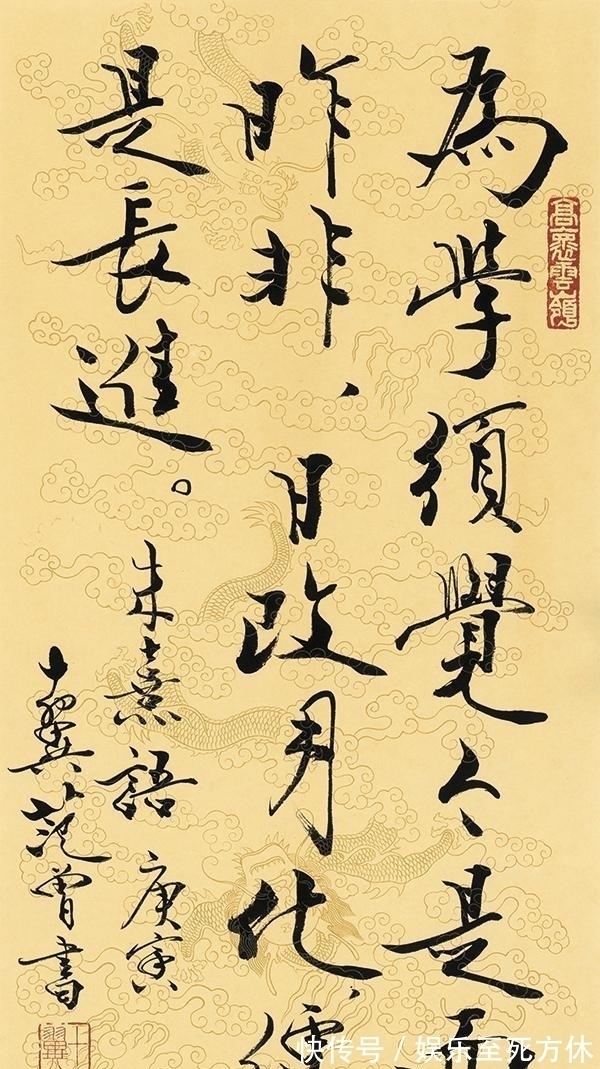 為學須覺今是而
昨非、日改月化、
是長進。
朱熹語 庚寅
十翼范曾書
十翼
快传号 / 娱乐至死方休